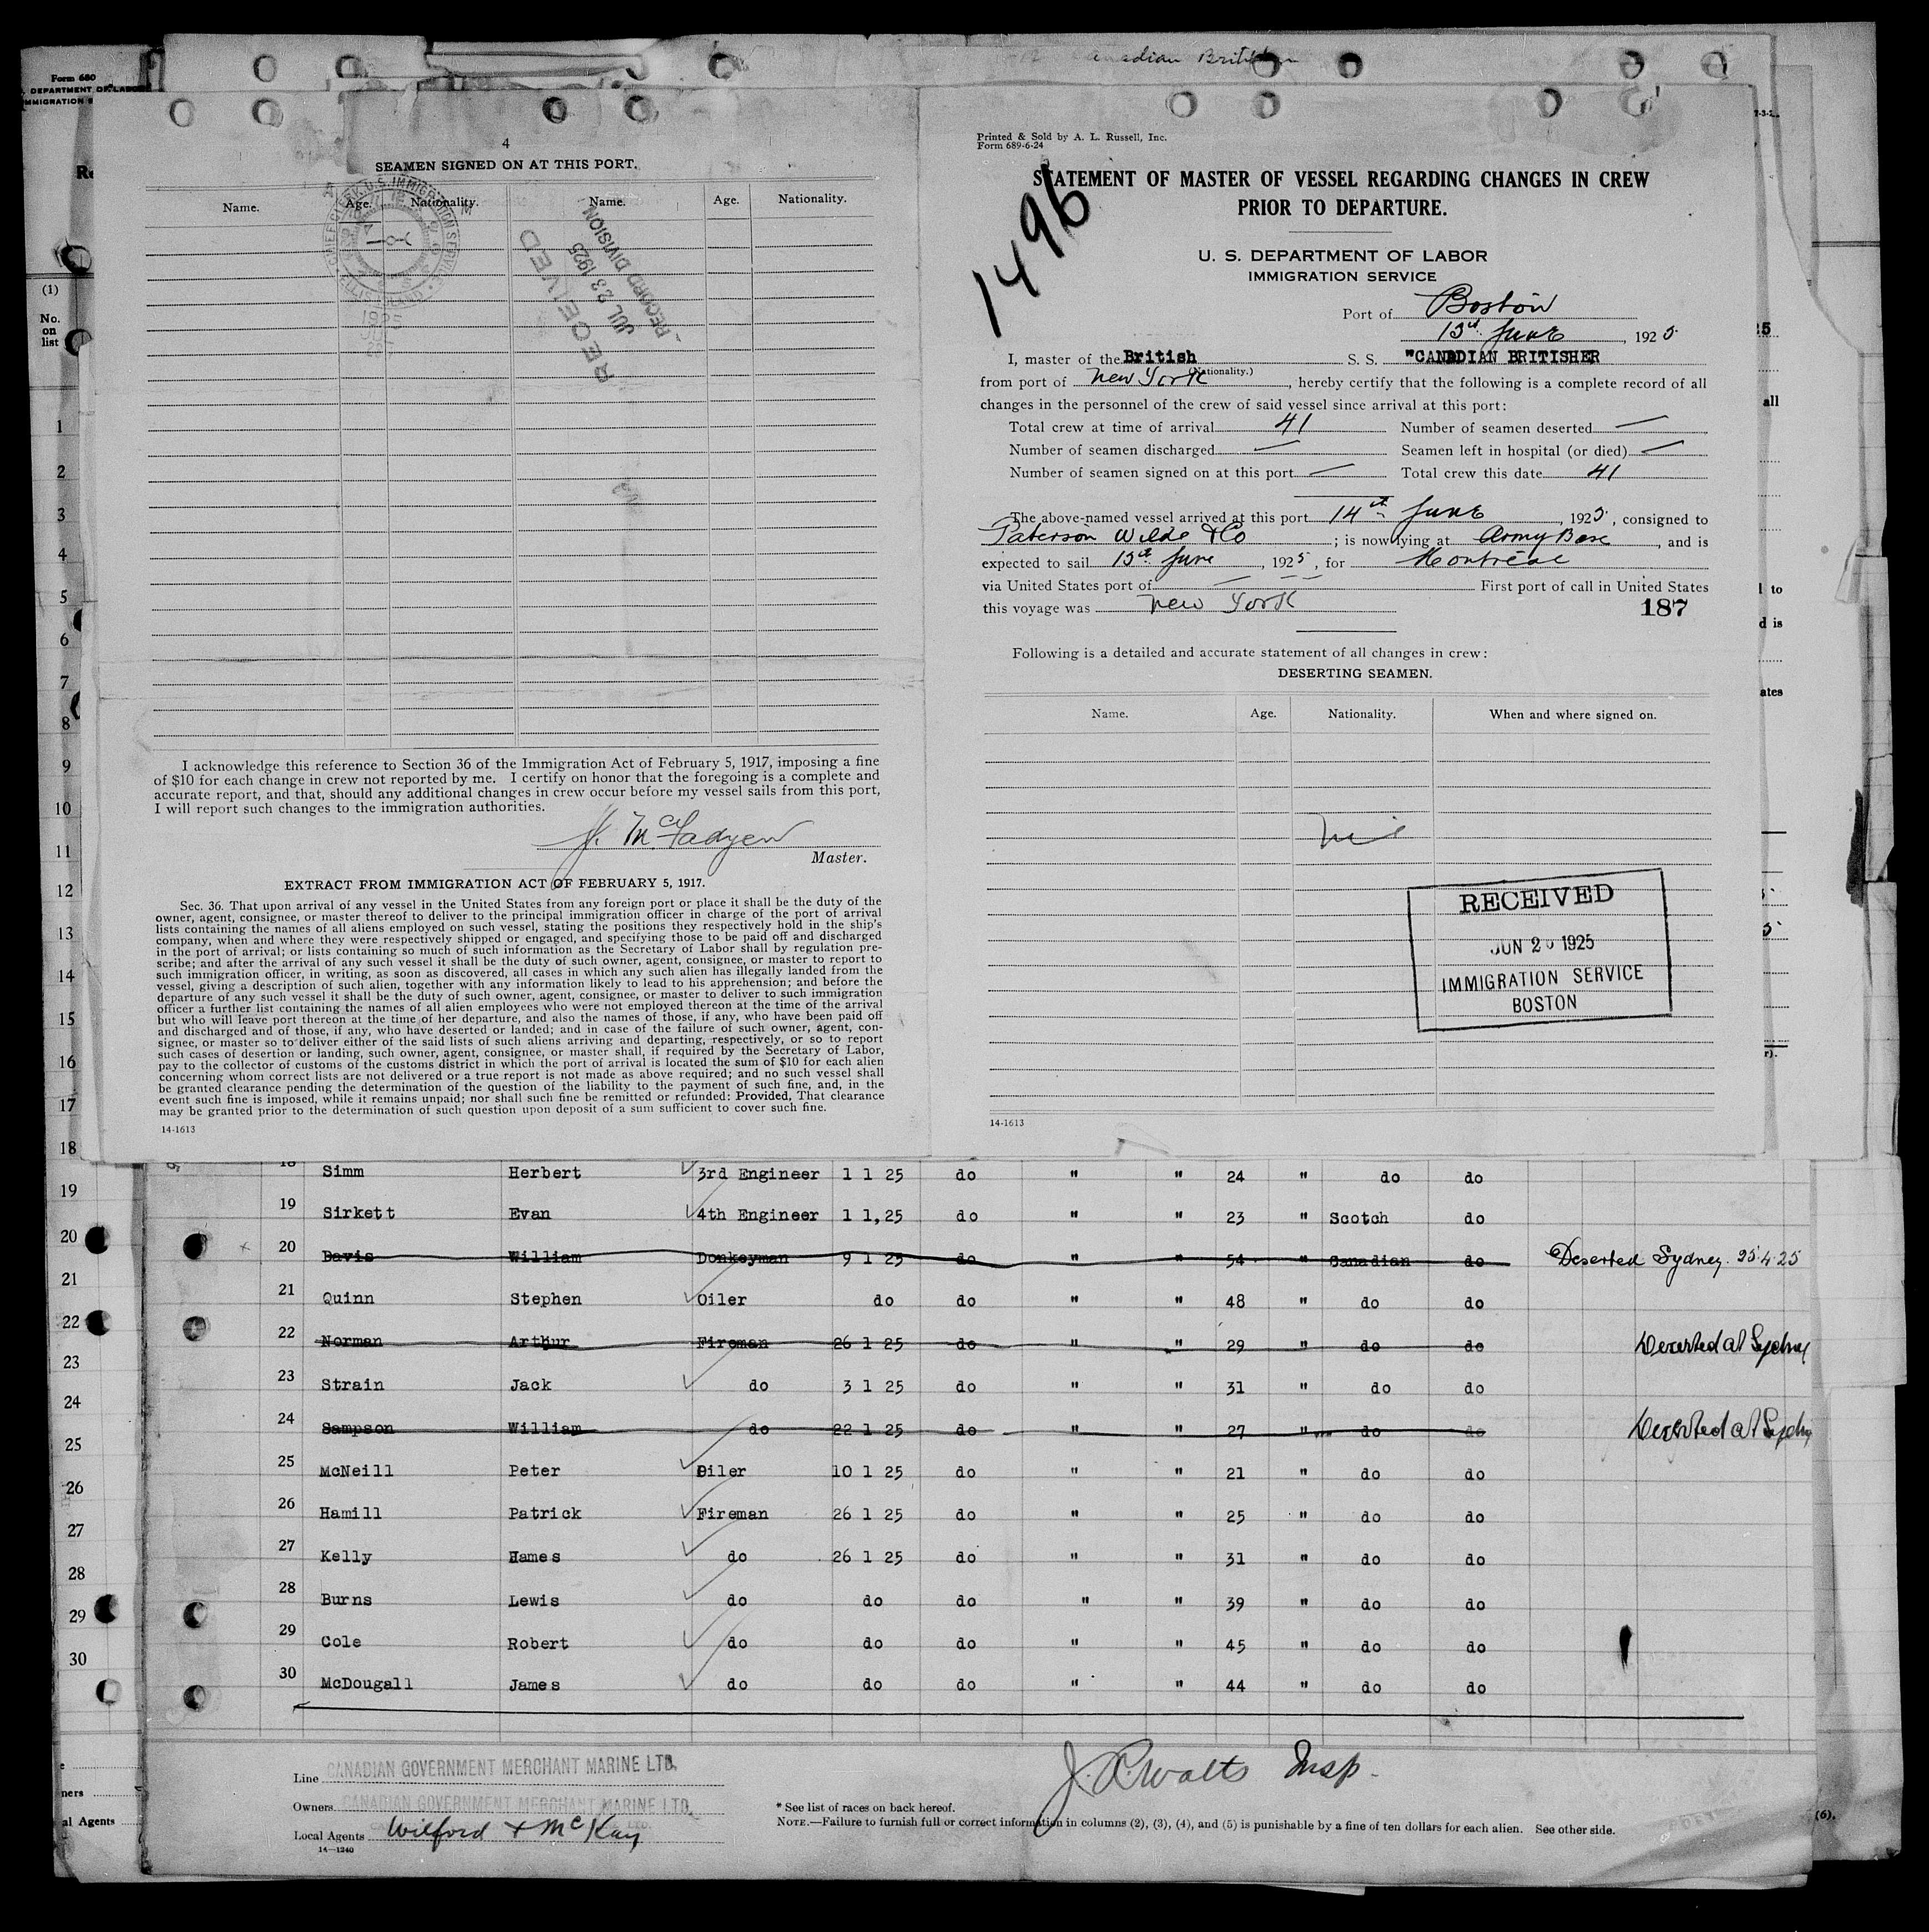 Form 680
DEPARTMENT OF LABOR
IMMIGRATION
(1)
No.
on
list
Canadian British
4
SEAMEN SIGNED ON AT THIS PORT.
Name. Age. Nationality. Name. Age. Nationality.
RECEIVED
JUL 23 1925
RECORD DIVISION
I acknowledge this reference to Section 36 of the Immigration Act of February 5, 1917, imposing a fine
of $10 for each change in crew not reported by me. I certify on honor that the foregoing is a complete and
accurate report, and that, should any additional changes in crew occur before my vessel sails from this port,
I will report such changes to the immigration authorities.
McFadyen
Master.
EXTRACT FROM IMMIGRATION ACT OF FEBRUARY 5, 1917.
Sec. 36. That upon arrival of any vessel in the United States from any foreign port or place it shall be the duty of the
owner, agent, consignee, or master thereof to deliver to the principal immigration officer in charge of the port of arrival
lists containing the names of all aliens employed on such vessel, stating the positions they respectively hold in the ship's
company, when and where they were respectively shipped or engaged, and specifying those to be paid off and discharged
in the port of arrival; or lists containing so much of such information as the Secretary of Labor shall by regulation pre-
scribe; and after the arrival of any such vessel it shall be the duty of such owner, agent, consignee, or master to report to
such immigration officer, in writing, as soon as discovered, all cases in which any such alien has illegally landed from the
vessel, giving a description of such alien, together with any information likely to lead to his apprehension; and before the
departure of any such vessel it shall be the duty of such owner, agent, consignee, or master to deliver to such immigration
officer a further list containing the names of all alien employees who were not employed thereon at the time of the arrival
but who will leave port thereon at the time of her departure, and also the names of those, if any, who have been paid off
and discharged and of those, if any, who have deserted or landed; and in case of the failure of such owner, agent, con-
signee, or master so to deliver either of the said lists of such aliens arriving and departing, respectively, or so to report
such cases of desertion or landing, such owner, agent, consignee, or master shall, if required by the Secretary of Labor,
pay to the collector of customs of the customs district in which the port of arrival is located the sum of $10 for each alien
concerning whom correct lists are not delivered or a true report is not made as above required; and no such vessel shall
be granted clearance pending the determination of the question of the liability to the payment of such fine, and, in the
event such fine is imposed, while it remains unpaid; nor shall such fine be remitted or refunded: Provided, That clearance
may be granted prior to the determination of such question upon deposit of a sum sufficient to cover such fine.
14-1613
Printed & Sold by A. L. Russell, Inc.
Form 689-6-24
1496
STATEMENT OF MASTER OF VESSEL REGARDING CHANGES IN CREW
PRIOR TO DEPARTURE.
U. S. DEPARTMENT OF LABOR
IMMIGRATION SERVICE
Port of Boston
15th June, 1925
I, master of the British S. S. "CANADIAN BRITISHER
(Nationality.)
from port of New York, hereby certify that the following is a complete record of all
changes in the personnel of the crew of said vessel since arrival at this port:
Total crew at time of arrival 41 Number of seamen deserted —
Number of seamen discharged — Seamen left in hospital (or died) —
Number of seamen signed on at this port — Total crew this date 41
The above-named vessel arrived at this port 14th June, 1925, consigned to
Paterson Wilde & Co; is now lying at Army Base, and is
expected to sail 15th June, 1925, for Montreal
via United States port of — First port of call in United States
this voyage was New York
187
Following is a detailed and accurate statement of all changes in crew:
DESERTING SEAMEN.
Name. Age. Nationality. When and where signed on.
Nil
RECEIVED
JUN 20 1925
IMMIGRATION SERVICE
BOSTON
14-1613
1
2
3
4
5
6
7
8
9
10
11
12
13
14
15
16
17
18
19
20
21
22
23
24
25
26
27
28
29
30
18 Simm Herbert 3rd Engineer 1 1 25 do " " 24 " do do
19 Sirkett Evan 4th Engineer 1 1,25 do " " 23 " Scotch do
20 Davis William Donkeyman 9 1 25 do " " 54 " Canadian do Deserted Sydney. 25.4.25
21 Quinn Stephen Oiler do do " " 48 " do do
22 Norman Arthur Fireman 26 1 25 do " " 29 " do do Deserted at Sydney
23 Strain Jack do 3 1 25 do " " 31 " do do
24 Sampson William do 22 1 25 do " " 27 " do do Deserted at Sydny
25 McNeill Peter Oiler 10 1 25 do " " 21 " do do
26 Hamill Patrick Fireman 26 1 25 do " " 25 " do do
27 Kelly Hames do 26 1 25 do " " 31 " do do
28 Burns Lewis do do do " " 39 " do do
29 Cole Robert do do do " " 45 " do do
30 McDougall James do do do " " 44 " do do
Line CANADIAN GOVERNMENT MERCHANT MARINE LTD.
Owners CANADIAN GOVERNMENT MERCHANT MARINE LTD.
Local Agents Wilford & McKay
14—1240
J. R. Walts Insp.
* See list of races on back hereof.
NOTE.—Failure to furnish full or correct information in columns (2), (3), (4), and (5) is punishable by a fine of ten dollars for each alien. See other side.
al Agents
(6).